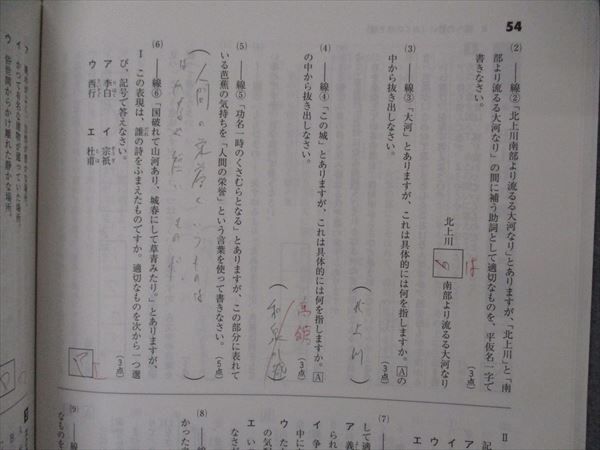 54
(2) ――線②「北上川南部より流るる大河なり」とありますが、「北上川」と「南
部より流るる大河なり」の間に補う助詞として適切なものを、平仮名一字で
書きなさい。
(3点)
北上川
の
は
南部より流るる大河なり
(3) ――線③「大河」とありますが、これは具体的には何を指しますか。Aの
中から抜き出しなさい。
(3点)
(北上川)
(4) ――線④「この城」とありますが、これは具体的には何を指しますか。A
の中から抜き出しなさい。
(3点)
高館
(和泉が城)
(5) ――線⑤「功名一時のくさむらとなる」とありますが、この部分に表れて
いる芭蕉の気持ちを「人間の栄誉」という言葉を使って書きなさい。
(5点)
(人間の栄誉というものは
はかない
(6) ――線⑥「国破れて山河あり、城春にして草青みたり。」とありますが、
Ⅰ この表現は、誰の詩をふまえたものですか。適切なものを次から一つ選
び、記号で答えなさい。
(3点)
ア 李白 イ 宗祇
ウ 西行 エ 杜甫
ア
エ
Ⅱ
(7)
(8)
(9)
イ かつて有名な建物が建っていた場所。
ウ 俗世間からかけ離れた静かな場所。